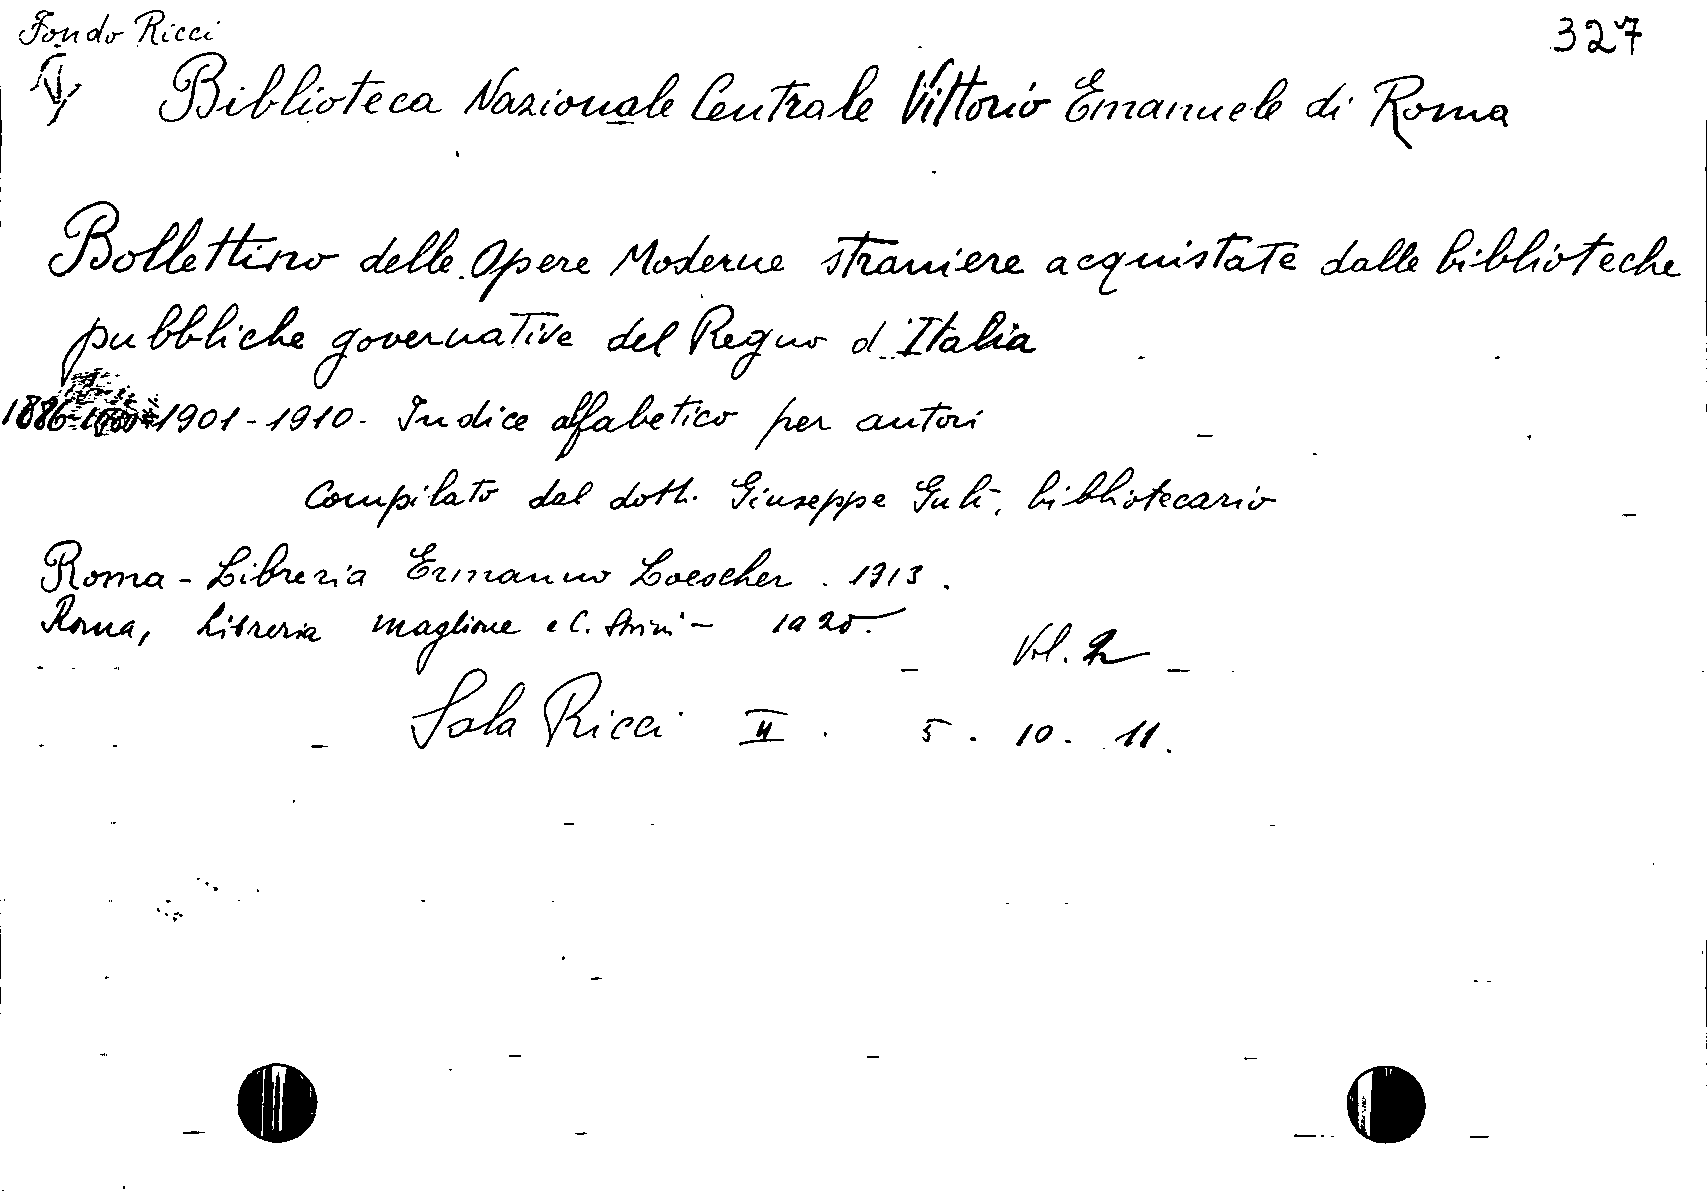 Fondo Ricci
327
Biblioteca Nazionale Centrale Vittorio Emanuele di Roma
Bollettino delle Opere Moderne straniere acquistate dalle biblioteche
pubbliche governative del Regno d'Italia
1886- 1901-1910- Indice alfabetico per autori
Compilato dal dott. Giuseppe Gulì, bibliotecario
Roma - Libreria Ermanno Loescher. 1913.
Roma, Libreria Maglione e C. Strini - 1920.
Vol. 2
Sala Ricci II. 5. 10. 11.